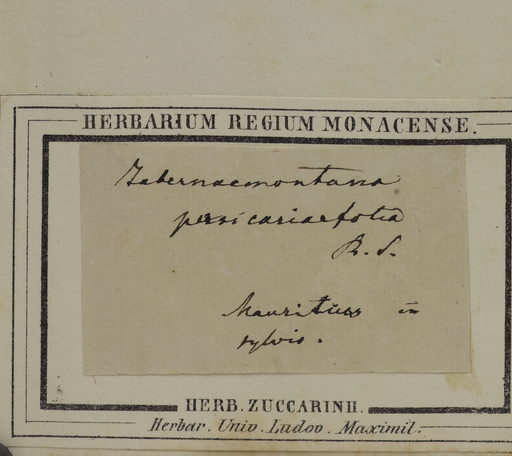 HERBARIUM REGIUM MONACENSE.
Tabernaemontana
persicariaefolia
R. S.
Mauritius in
sylvis.
HERB. ZUCCARINII.
Herbar. Univ. Ludov. Maximil.